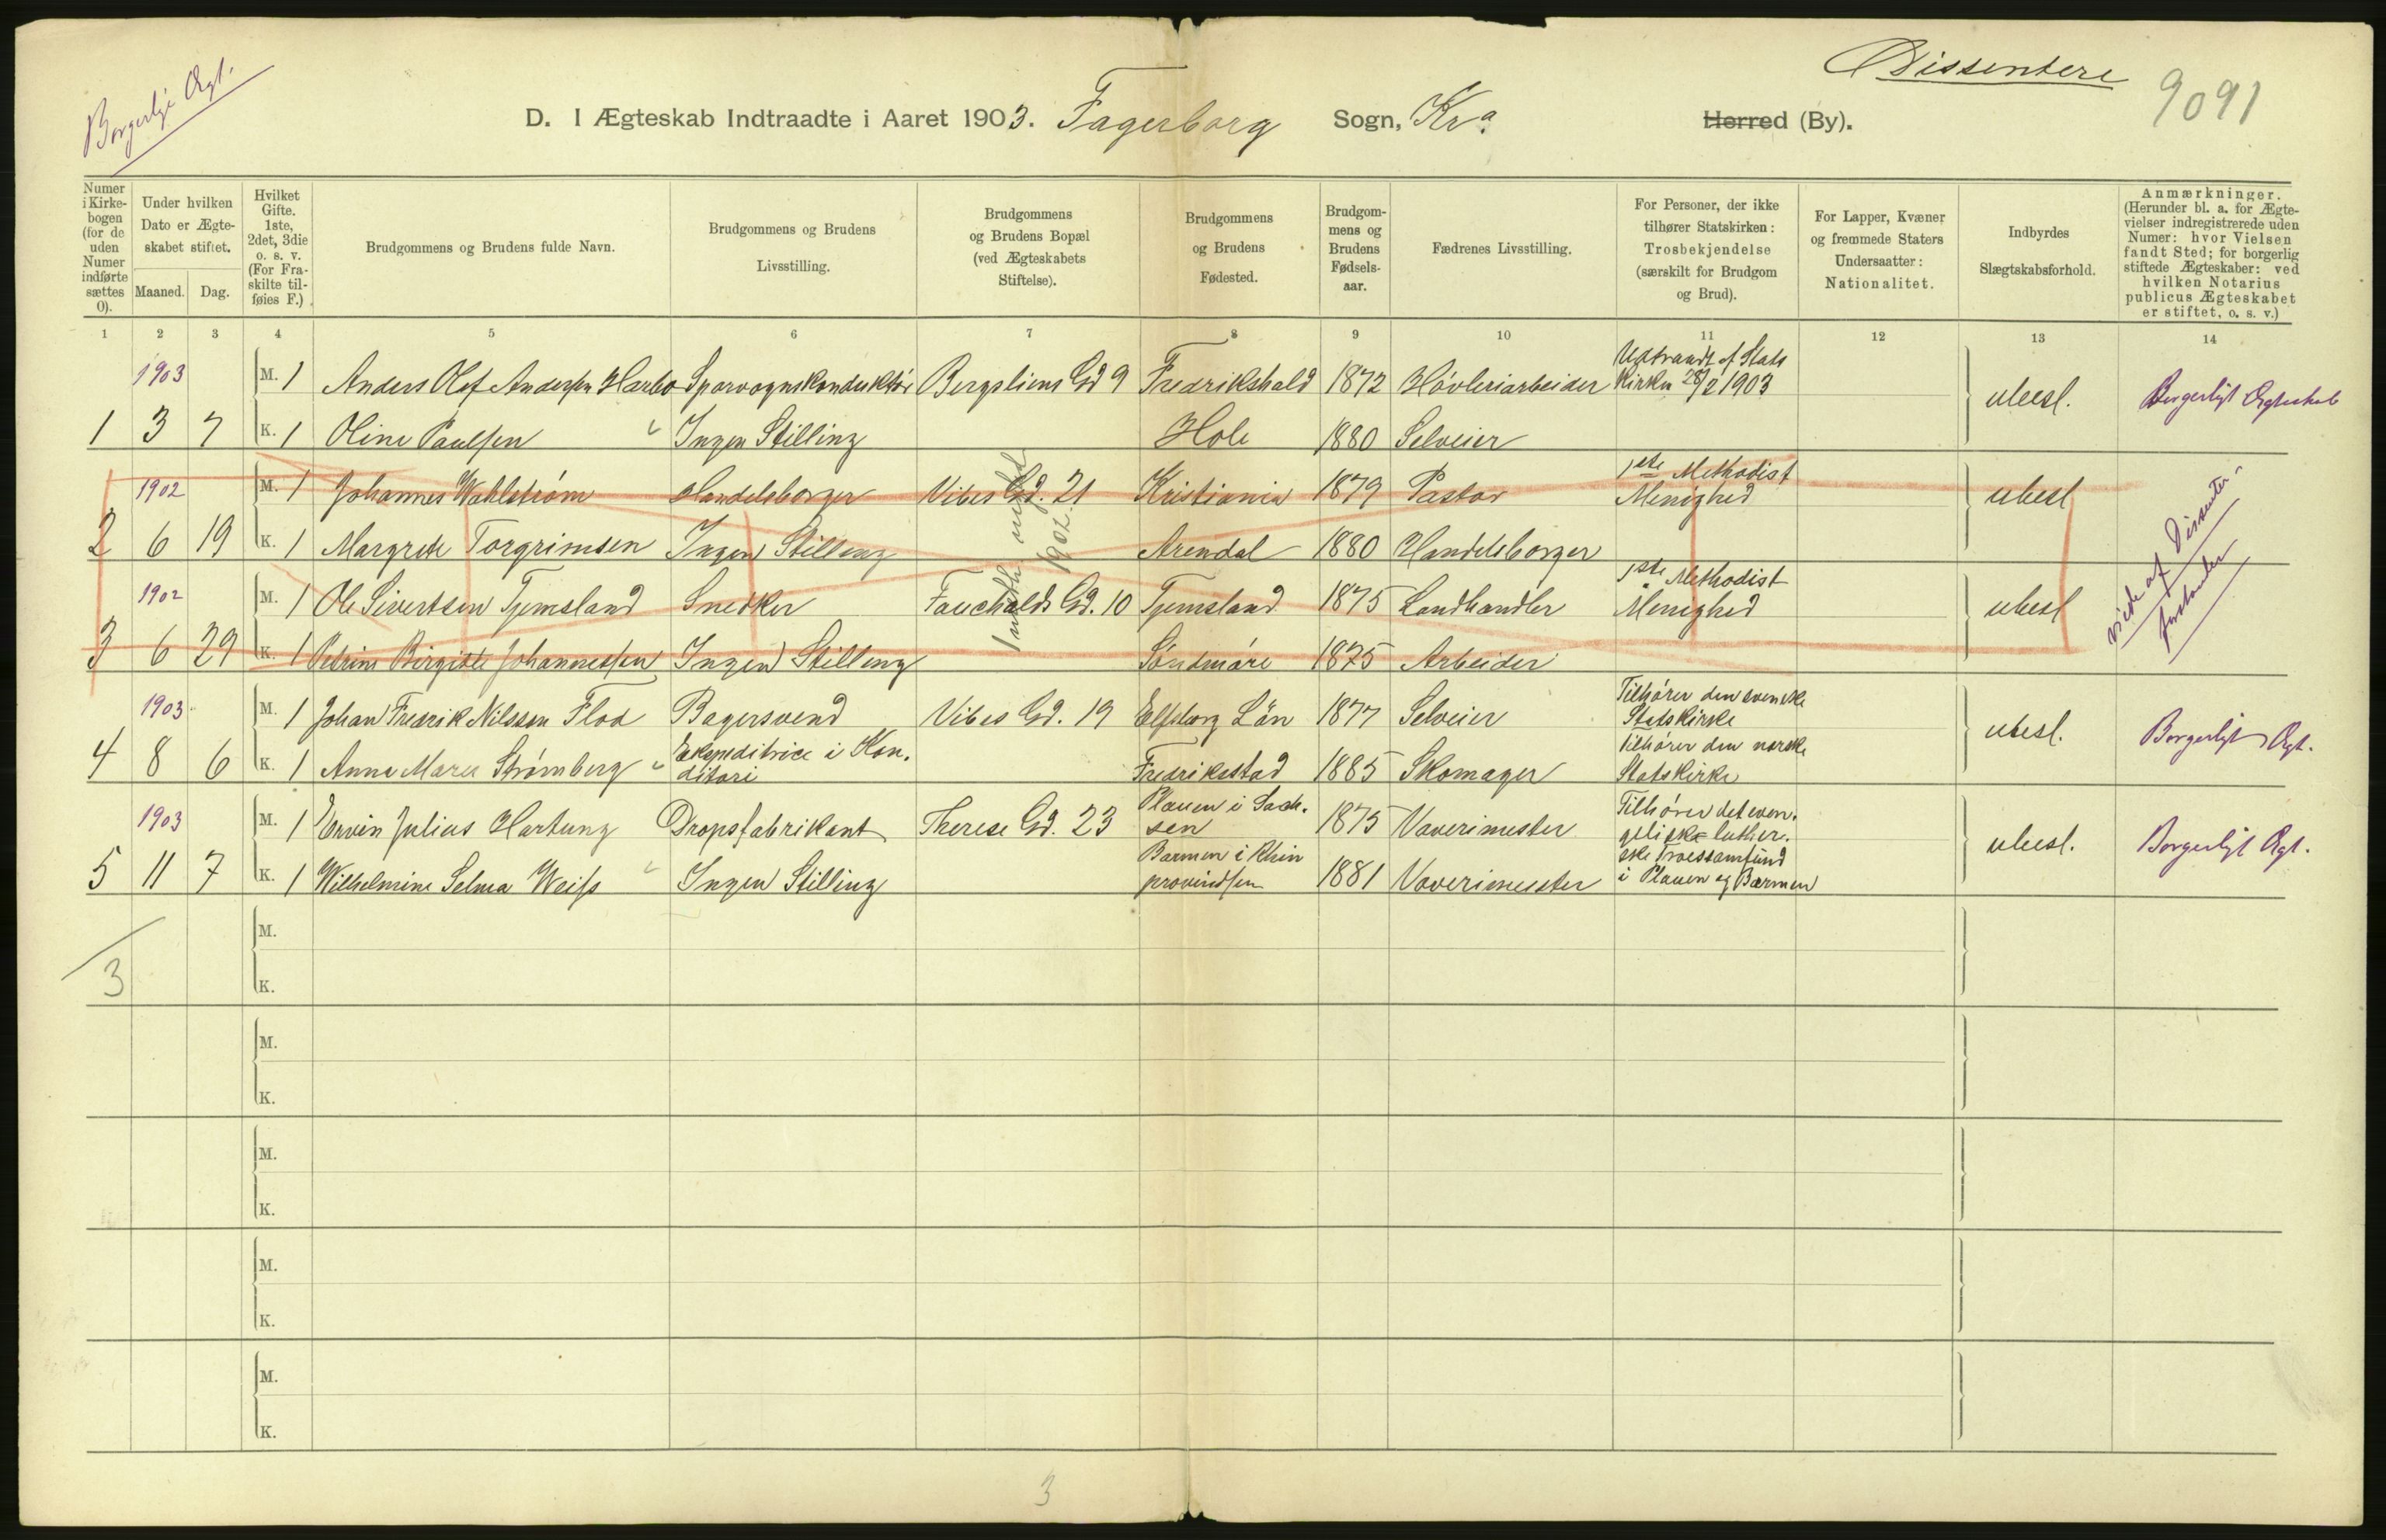 Dissentere
Borgerlige Ægt.
9091
D. I Ægteskab Indtraadte i Aaret 1903. Fagerborg Sogn, Kra. Herred (By).
Numer i Kirkebogen (for de uden Numer indførte sættes 0).
Under hvilken Dato er Ægteskabet stiftet.
Maaned. Dag.
Hvilket Gifte. 1ste, 2det, 3die o. s. v. (For Fraskilte tilføies F.)
Brudgommens og Brudens fulde Navn.
Brudgommens og Brudens Livsstilling.
Brudgommens og Brudens Bopæl (ved Ægteskabets Stiftelse).
Brudgommens og Brudens Fødested.
Brudgommens og Brudens Fødselsaar.
Fædrenes Livsstilling.
For Personer, der ikke tilhører Statskirken: Trosbekjendelse (særskilt for Brudgom og Brud).
For Lapper, Kvæner og fremmede Staters Undersaatter: Nationalitet.
Indbyrdes Slægtskabsforhold.
Anmærkninger. (Herunder bl. a. for Ægtevielser indregistrerede uden Numer: hvor Vielsen fandt Sted; for borgerlig stiftede Ægteskaber: ved hvilken Notarius publicus Ægteskabet er stiftet, o. s. v.)
1 2 3 4 5 6 7 8 9 10 11 12 13 14
1903 M. 1 Anders Olaf Andersen Harbo Sporvognskonduktør Bergsliens Gd 9 Fredrikshald 1872 Høvleriarbeider Udtraadt af Stats kirken 28/2 1903 ubesl. Borgerligt Ægteskab
1 3 7 K. 1 Oline Paulsen Ingen Stilling Hole 1880 Selveier
1902 M. 1 Johannes Wahlstrøm Handelsborger Vibes Gd. 21 Kristiania 1879 Pastor 1ste Methodist Menighed ubesl
2 6 19 K. 1 Margrete Torgrimsen Ingen Stilling Arendal 1880 Handelsborger
1902 M. 1 Ole Sivertsen Tjemsland Snedker Fauchalds Gd. 10 Tjemsland 1875 Landhandler 1ste Methodist Menighed ubesl
3 6 29 K. 1 Petrine Birgitte Johannessen Ingen Stilling Søndmøre 1875 Arbeider
1902.
viede af Dissenter
forstander
1903 M. 1 Johan Fredrik Nilsson Flod Bagersvend Vibes Gd. 19 Elfsborg Län 1877 Selveier Tilhører den svenske Statskirke ubesl. Borgerligt Ægt.
4 8 6 K. 1 Anna Marie Strømberg Ekspeditrice i Konditori Fredriksstad 1885 Skomager Tilhører den norske Statskirke
1903 M. 1 Ervin Julius Hartung Dropsfabrikant Therese Gd. 23 Plauen i Sachsen 1875 Væverimester Tilhører det evangeliske lutherske Troessamfund i Plauen og Barmen ubesl. Borgerligt Ægt.
5 11 7 K. 1 Wilhelmine Selma Weiss Ingen Stilling Barmen i Rhinprovindsen 1881 Væverimester
M.
3
K.
M.
K.
M.
K.
M.
K.
M.
K.
3